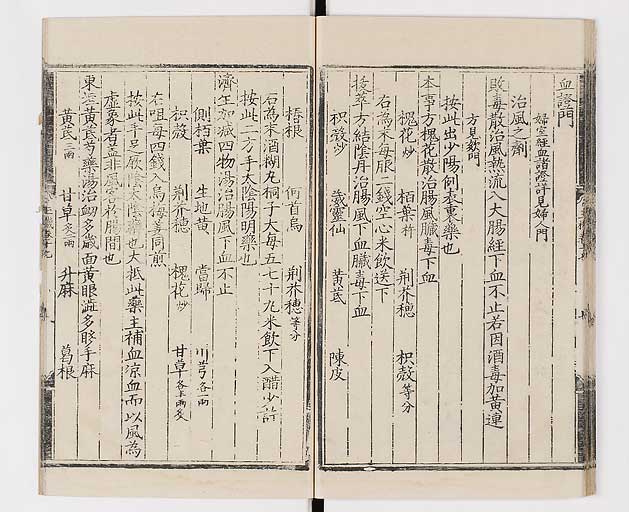 血證門
婦室經血諸證詳見婦人門
治風之劑
敗毒散治風熱流入大腸經下血不止若因酒毒加黃連
方見欬門
按此出少陽例表裏藥也
本事方槐花散治腸風臟毒下血
槐花炒 栢葉 荆芥穗 枳殼等分
右為末每服二錢空心米飲送下
拔萃方結陰丹治腸風下血臟毒下血
枳殼炒 葳靈仙 黃茋 陳皮
椿根 何首烏 荆芥穗等分
右為末酒糊丸桐子大每五七十丸米飲下入醋少許
按此二方手太陰陽明藥也
濟生加减四物湯治腸風下血不止
側栢葉 生地黃 當歸 川芎各一兩
枳殼 荆芥穗 槐花炒 甘草各半兩炙
右㕮咀每四錢入烏梅薑同煎
按此手足厥陰太陰藥也大抵此藥主補血凉血而以風為
虚象者盖非風客於腸間也
東垣黃茋芍藥湯治衂多歲面黃眼澁多眵手麻
黃茋三兩 甘草炙二兩 升麻 葛根